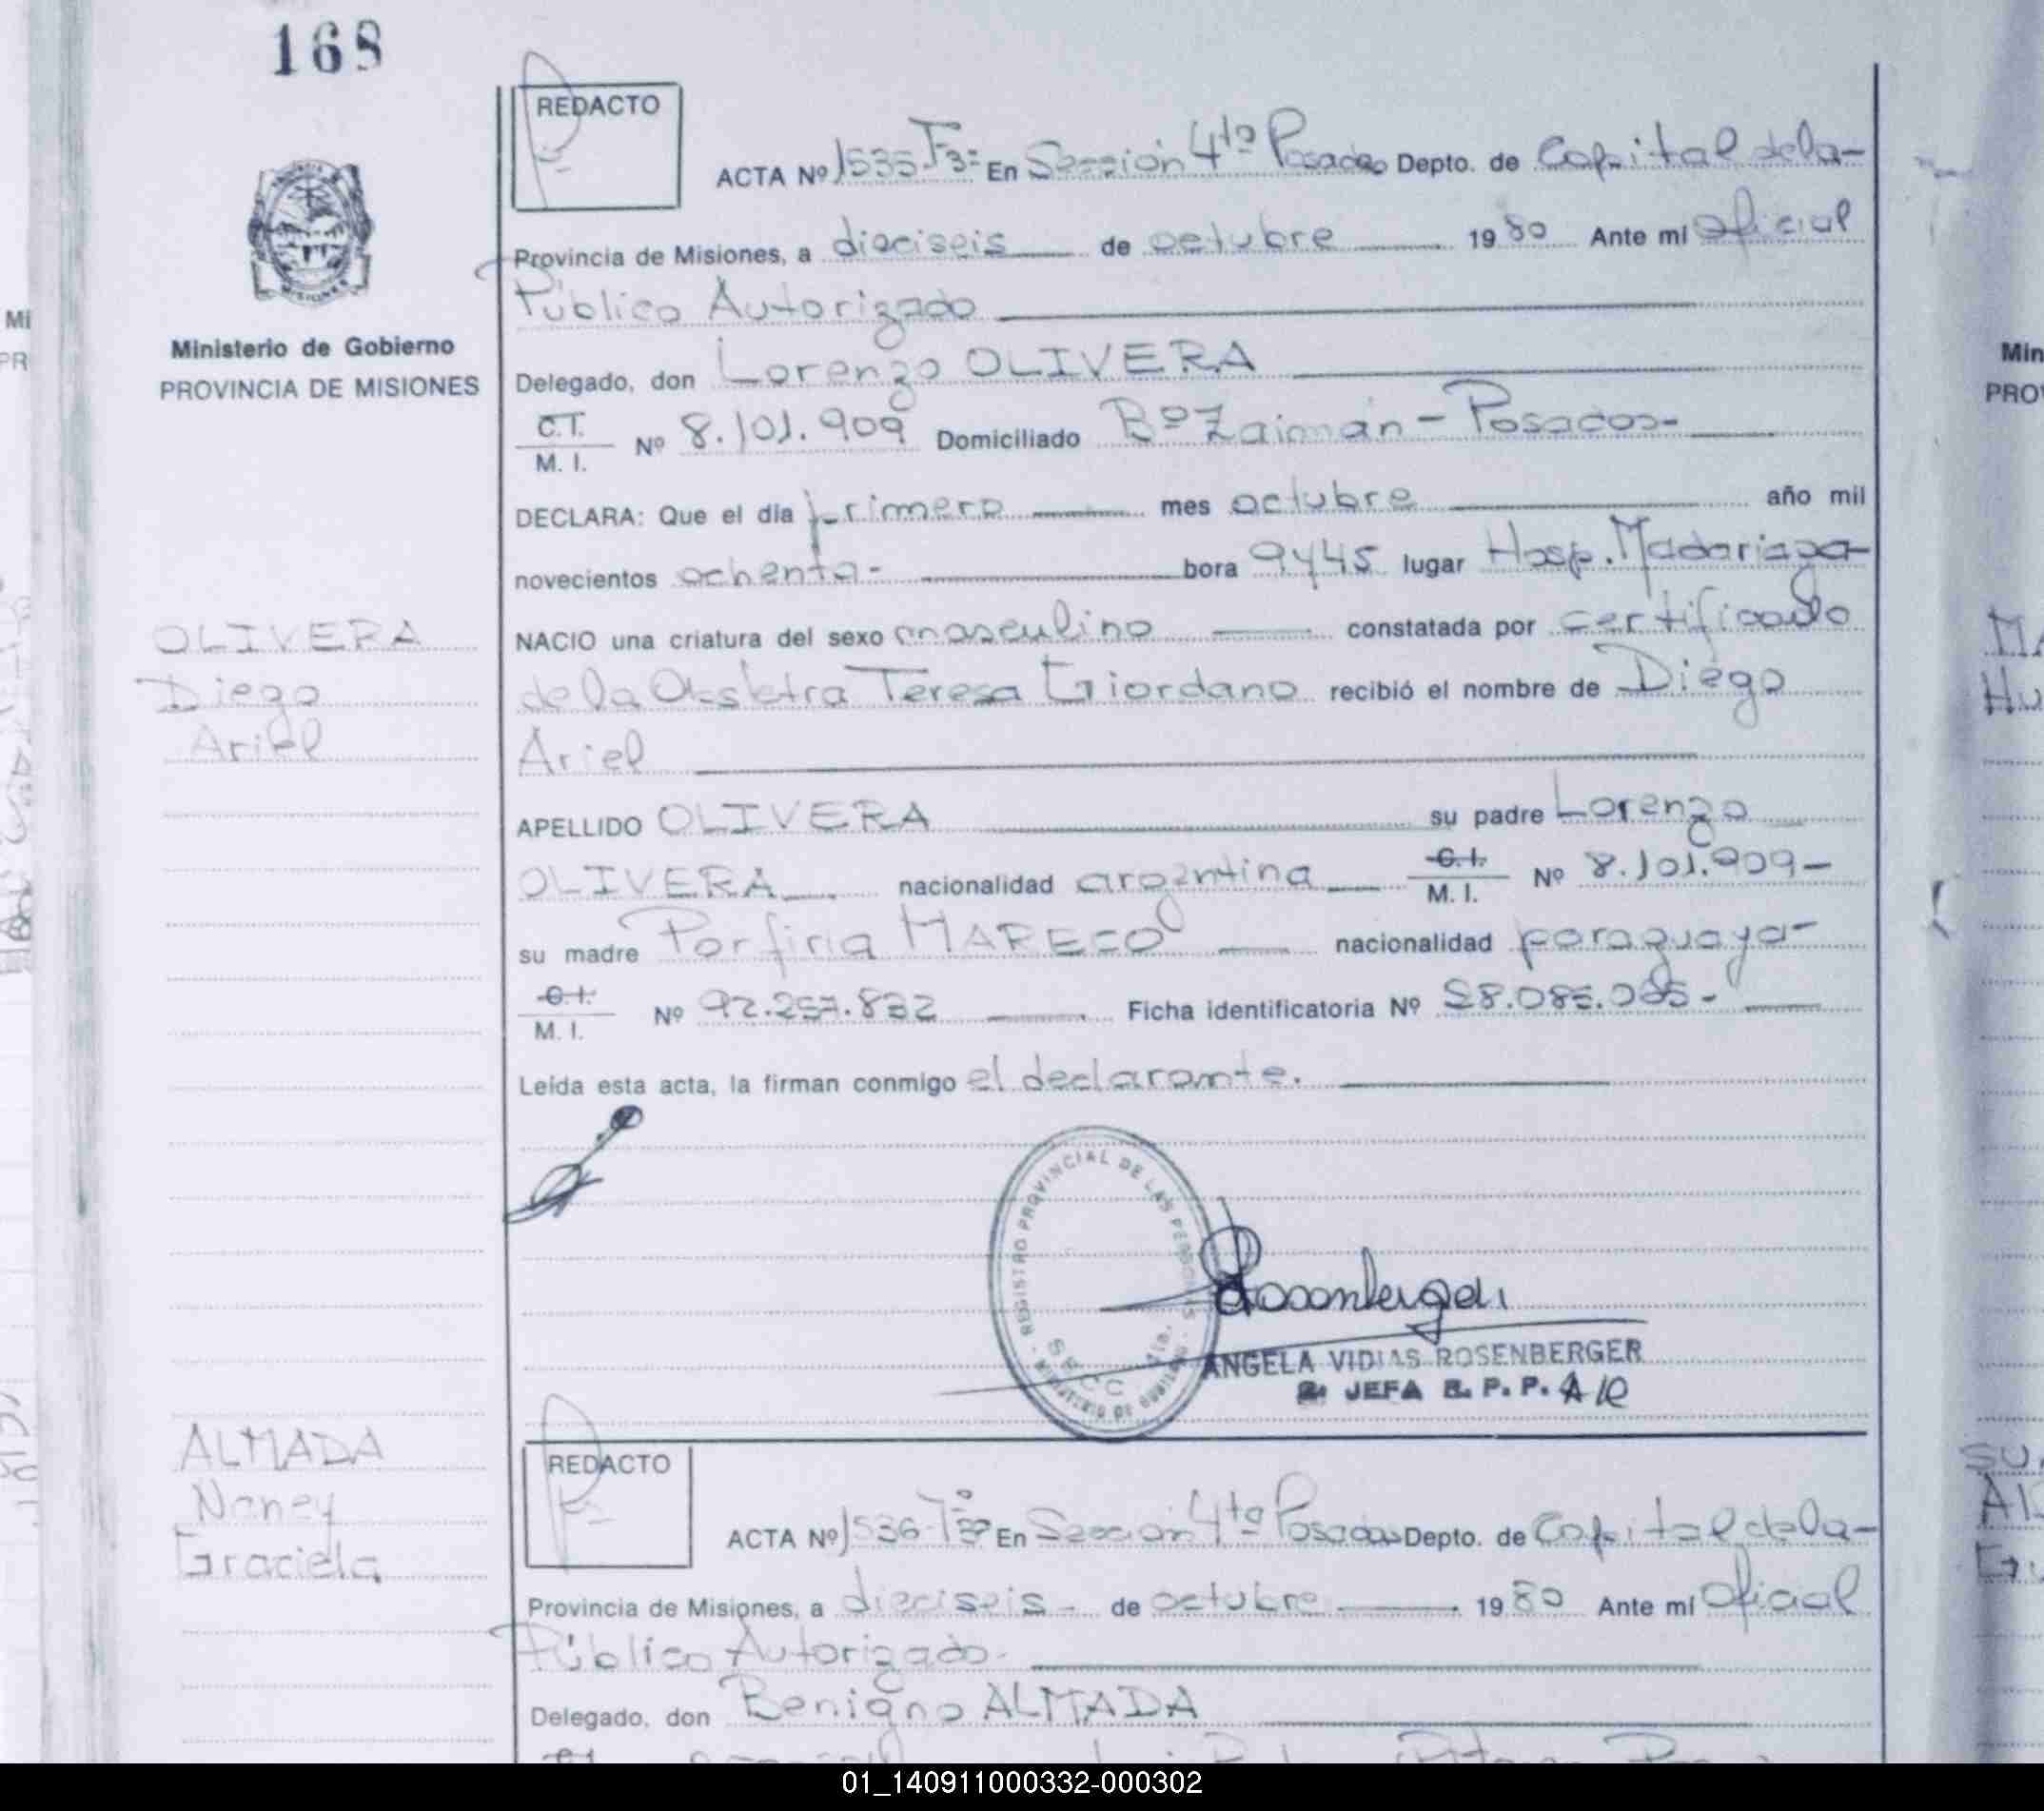 168
REDACTO
ACTA Nº 1535 Tº3º En Sección 4ta Posadas Depto. de Capital de la-
Provincia de Misiones, a dieciseis de octubre 1980 Ante mí Oficial
Público Autorizado
Ministerio de Gobierno
PROVINCIA DE MISIONES
Delegado, don Lorenzo OLIVERA
C.I. M. I. Nº 8.101.909 Domiciliado Bº Zaimán - Posadas-
DECLARA: Que el día primero mes octubre año mil
novecientos ochenta- hora 9y45 lugar Hosp. Madariaga-
OLIVERA
Diego
Ariel
NACIO una criatura del sexo masculino constatada por certificado
de la Obstetra Teresa Giordano recibió el nombre de Diego
Ariel
APELLIDO OLIVERA su padre Lorenzo
OLIVERA nacionalidad argentina C.I. M. I. Nº 8.101.909-
su madre Porfiria MARECO nacionalidad paraguaya-
C.I. M. I. Nº 92.257.832 Ficha identificatoria Nº 28.085.
Leída esta acta, la firman conmigo el declarante.
REGISTRO PROVINCIAL DE LAS PERSONAS
SECC 4ta.
ANGELA VIDIAS ROSENBERGER
JEFA R. P. P.
ALMADA
Nancy
Graciela
REDACTO
ACTA Nº 1536 Tº3º En Sección 4ta Posadas Depto. de Capital de la-
Provincia de Misiones, a dieciseis- de octubre 1980 Ante mí Oficial
Público Autorizado-
Delegado, don Benigno ALMADA
01_140911000332-000302